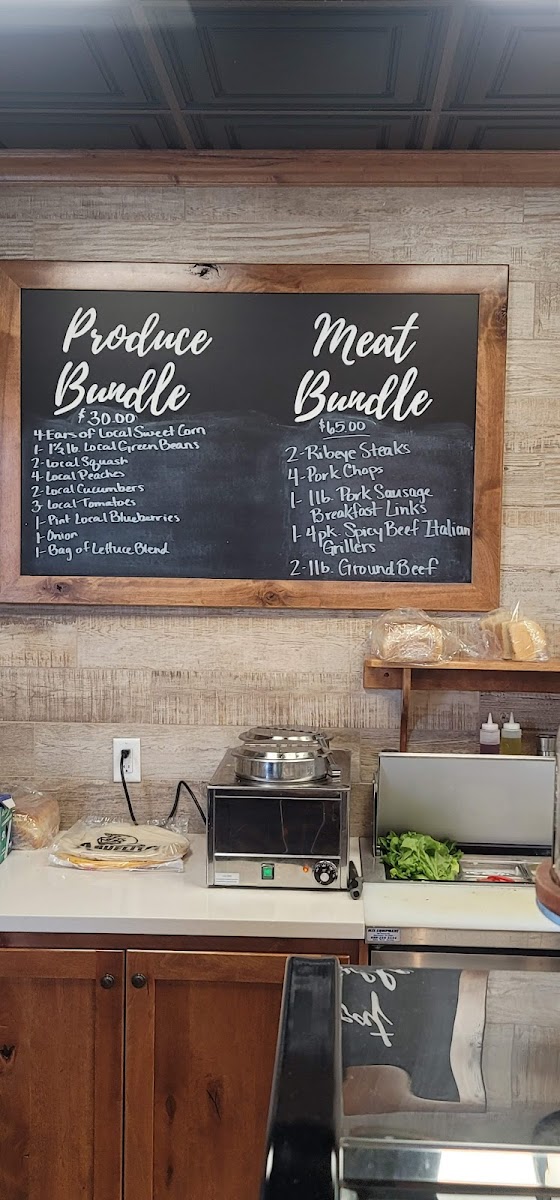 Produce
Bundle
$30.00
4-Ears of Local Sweet Corn
1- 1½ lb. Local Green Beans
2-Local Squash
4-Local Peaches
2-Local Cucumbers
3-Local Tomatoes
1-Pint Local Blueberries
1-Onion
1-Bag of Lettuce Blend
Meat
Bundle
$65.00
2-Ribeye Steaks
4-Pork Chops
1- 1lb. Pork Sausage
Breakfast Links
1-4pk. Spicy Beef Italian
Grillers
2-1lb. Ground Beef
ABUELITA